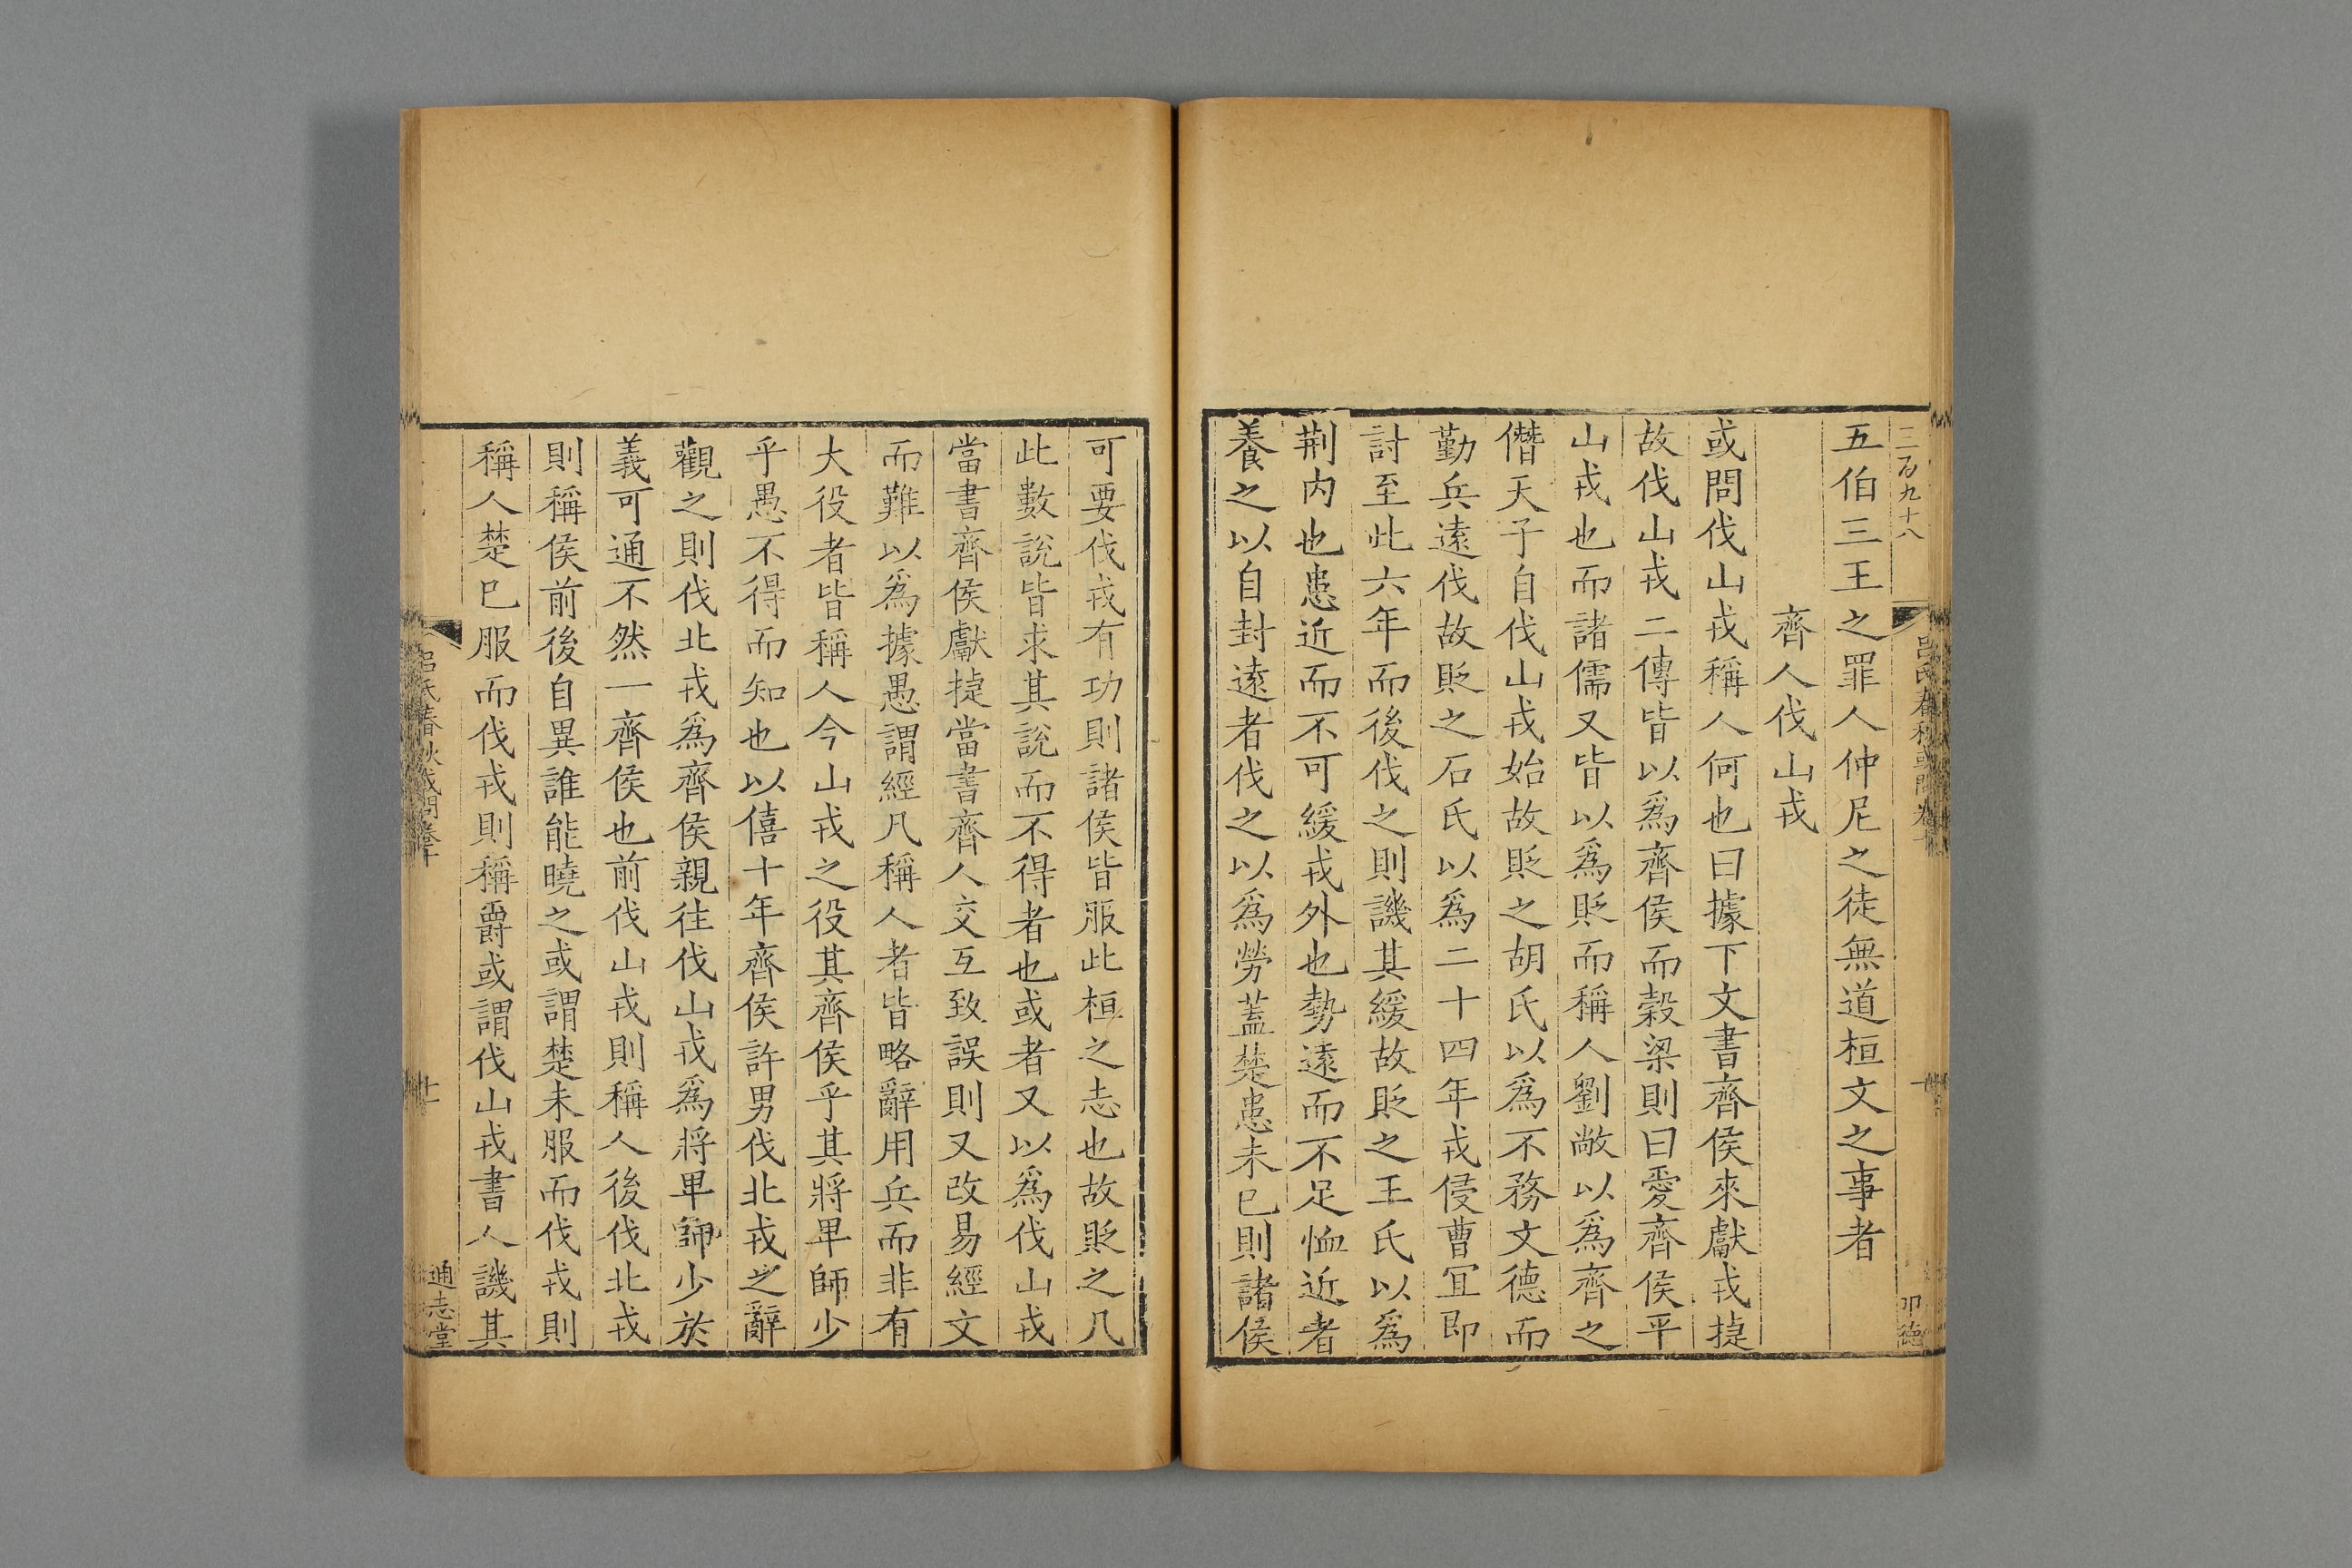 二百九十八
五伯三王之罪人仲尼之徒無道桓文之事者
齊人伐山戎
或問伐山戎稱人何也曰據下文書齊侯來獻戎捷
故伐山戎二傳皆以爲齊侯而穀梁則曰愛齊侯乎
山戎也而諸儒又皆以爲貶而稱人劉敞以爲齊之
僭天子自伐山戎始故貶之胡氏以爲不務文德而
勤兵遠伐故貶之石氏以爲二十四年戎侵曹宜即
討至此六年而後伐之則譏其緩故貶之王氏以爲
荆内也患近而不可緩戎外也勢遠而不足恤近者
養之以自封遠者伐之以爲勞蓋楚患未已則諸侯
可要伐戎有功則諸侯皆服此桓之志也故貶之凡
此數說皆求其說而不得者也或者又以爲伐山戎
當書齊侯獻捷當書齊人交互致誤則又改易經文
而難以爲據愚謂經凡稱人者皆略辭用兵而非有
大役者皆稱人今山戎之役其齊侯乎其將卑師少
乎愚不得而知也以僖十年齊侯許男伐北戎之辭
觀之則伐北戎爲齊侯親往伐山戎爲將卑師少於
義可通不然一齊侯也前伐山戎則稱人後伐北戎
則稱侯前後自異誰能曉之或謂楚未服而伐戎則
稱人楚已服而伐戎則稱爵或謂伐山戎書人譏其
呂氏春秋或問卷十
十一
通志堂